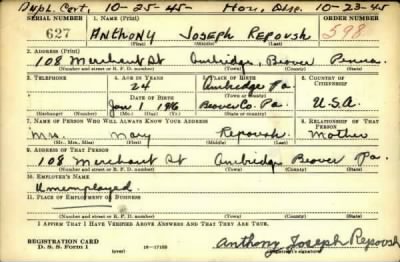 Dupl. Cert. 10-25-45 Hon. Disc. 10-23-45
SERIAL NUMBER 1. NAME (Print) ORDER NUMBER
627 ANTHONY JOSEPH REPOVSH 598
(First) (Middle) (Last)
2. ADDRESS (Print)
108 Merchant St Ambridge, Beaver Penna.
(Number and street or R. F. D. number) (Town) (County) (State)
3. TELEPHONE 4. AGE IN YEARS 5. PLACE OF BIRTH 6. COUNTRY OF CITIZENSHIP
24 Ambridge Pa
(Town or county)
DATE OF BIRTH
Jan 1 1916 Beaver Co. Pa. U.S.A.
(Exchange) (Number) (Mo.) (Day) (Yr.) (State or country)
7. NAME OF PERSON WHO WILL ALWAYS KNOW YOUR ADDRESS 8. RELATIONSHIP OF THAT PERSON
Mrs. Mary Repovsh Mother
(Mr., Mrs., Miss) (First) (Middle) (Last)
9. ADDRESS OF THAT PERSON
108 Merchant St Ambridge Beaver Pa.
(Number and street or R. F. D. number) (Town) (County) (State)
10. EMPLOYER'S NAME
Unemployed.
11. PLACE OF EMPLOYMENT OR BUSINESS
(Number and street or R. F. D. number) (Town) (County) (State)
I AFFIRM THAT I HAVE VERIFIED ABOVE ANSWERS AND THAT THEY ARE TRUE.
REGISTRATION CARD
D. S. S. Form 1 (over) 16-17105 Anthony Joseph Repovsh
(Registrant's signature)